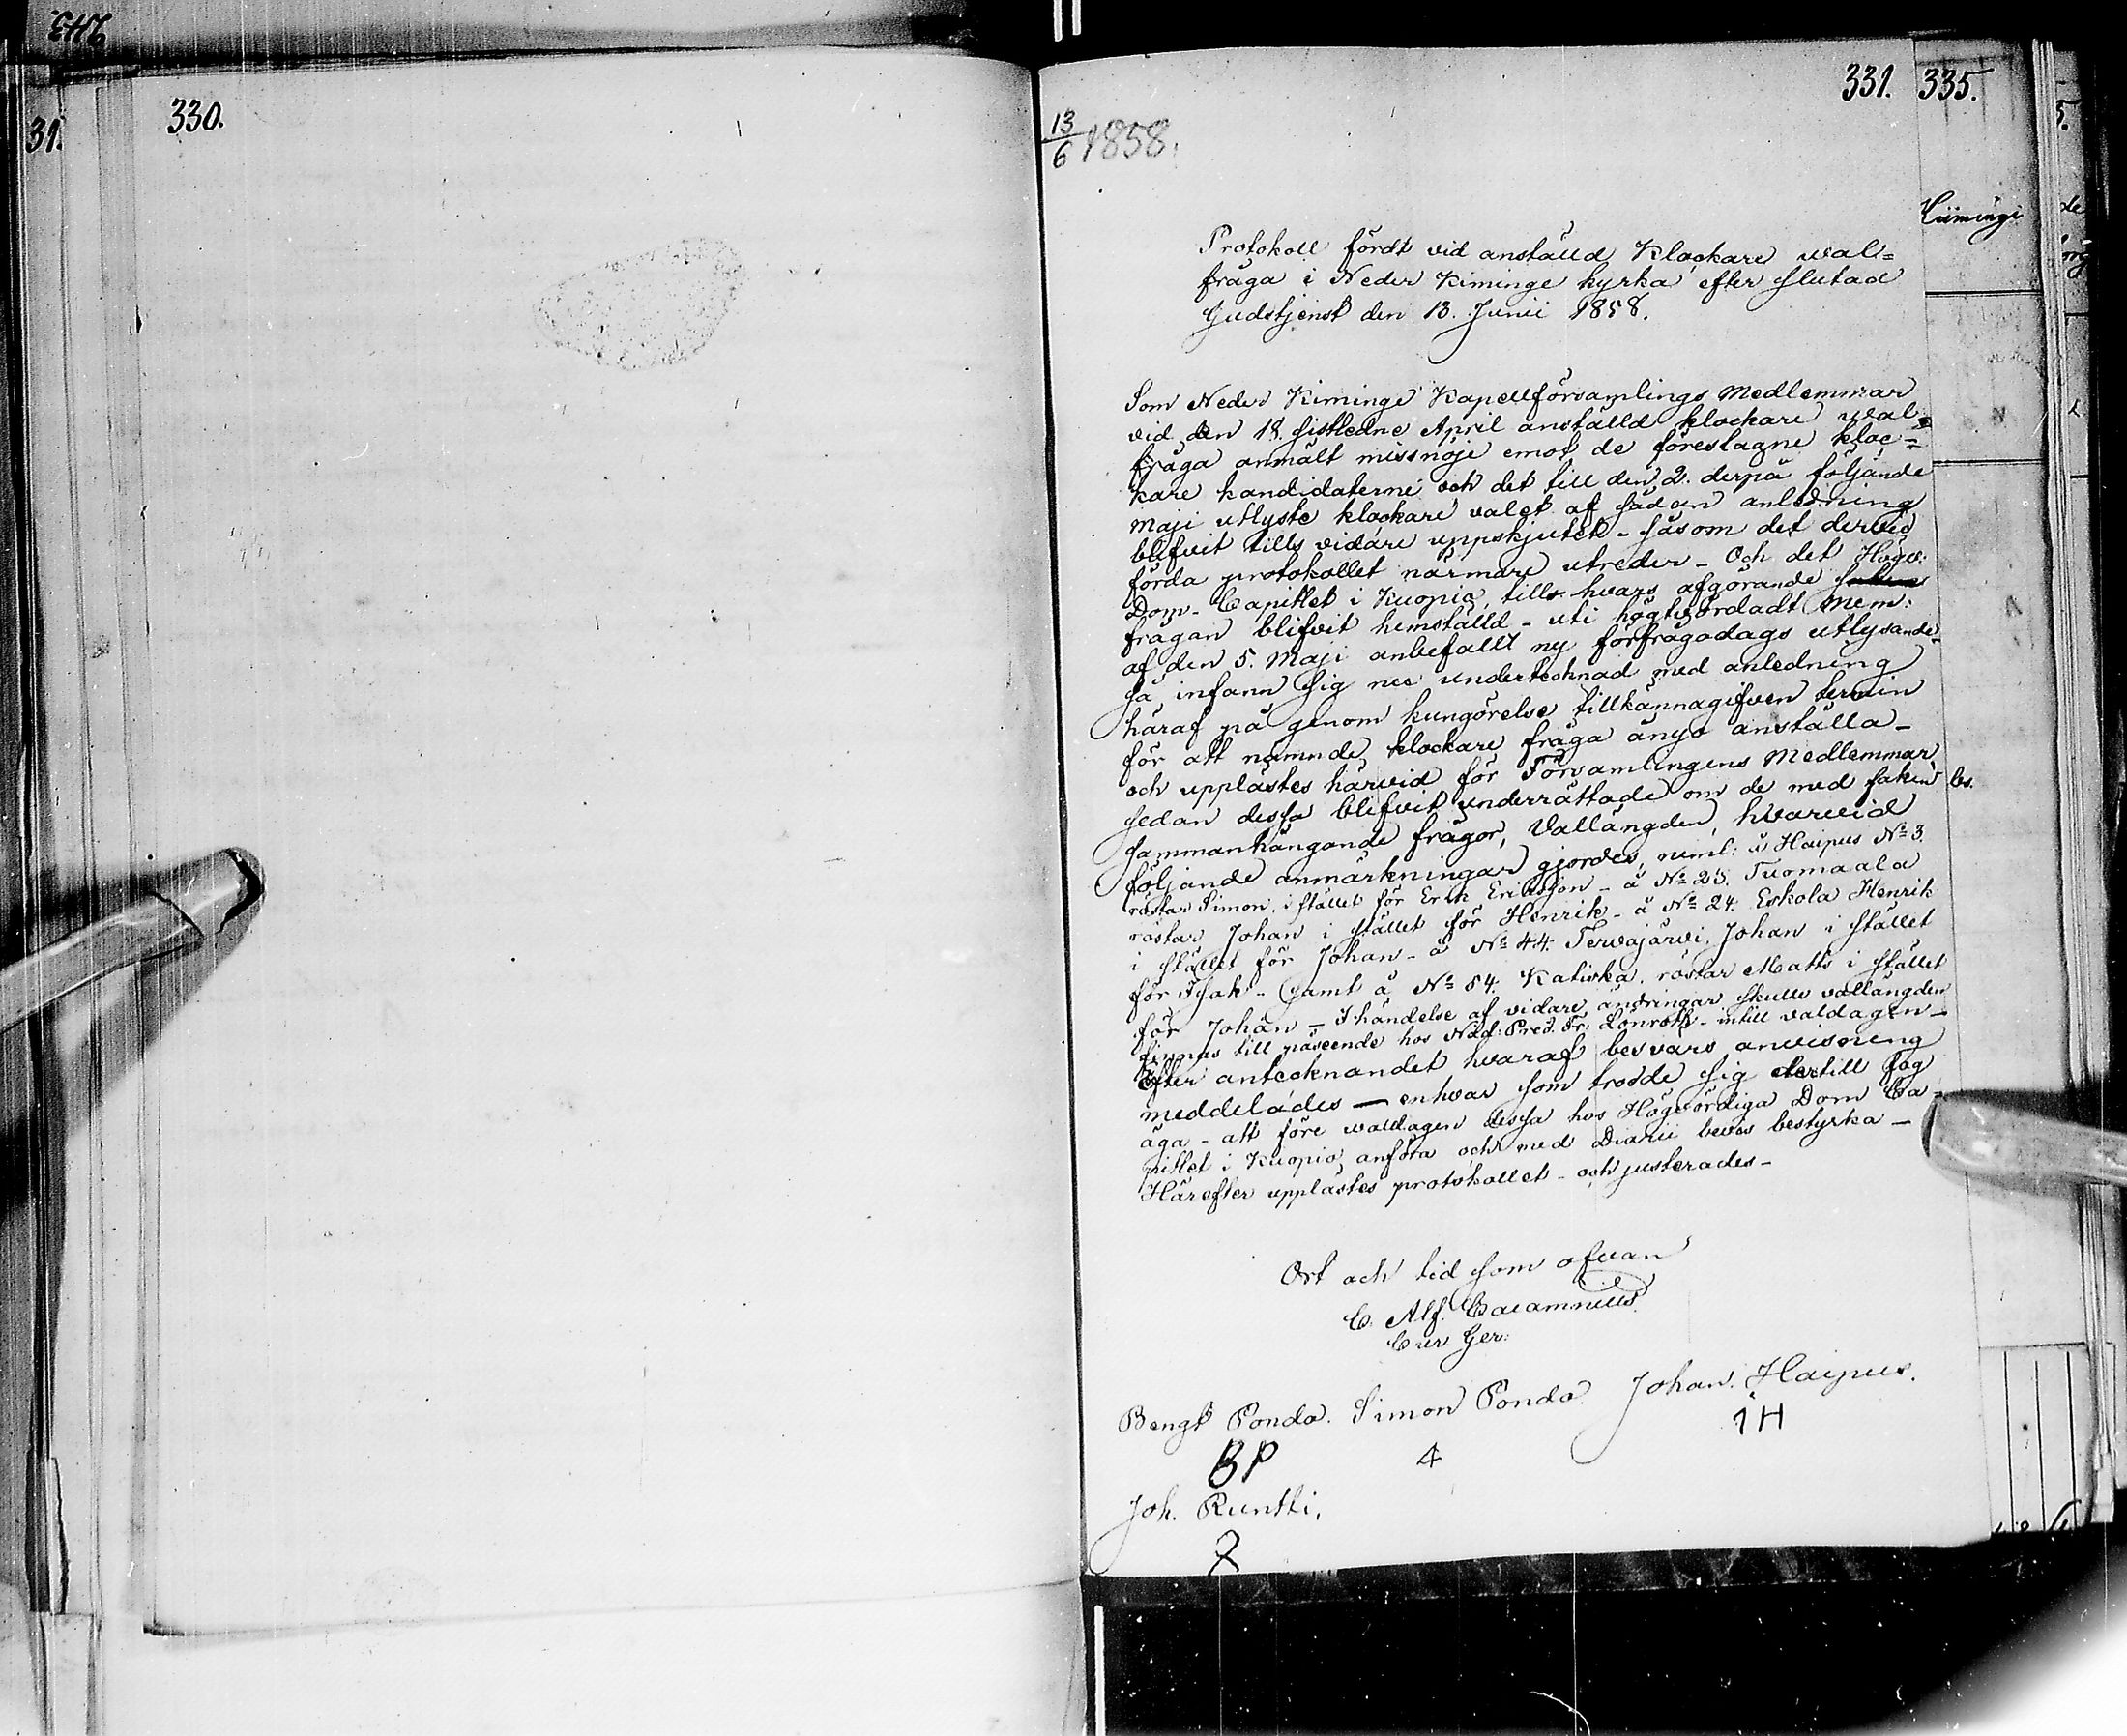 330.
31.
331.
335.
13/6 1858.
Kiimingi
Protokoll fördt vid anställd Klockare wal=
fråga i Neder Kiminge kyrka efter slutad
Gudstjenst den 13. Junii 1858.
Som Neder Kiminge Kapellförsamlings Medlemmar
vid den 18. sistledne April anställd klockare wal=
fråga anmält missnöje emot de föreslagne kloc=
kare kandidaterne och det till den 2. derpå följande
Maji utlyste klockare valet af sådan anledning
blifvit tills vidare uppskjutet - såsom det dervid
förda protokollet närmare utreder - Och det Högv:
Dom-Capitlet i Kuopio, till hvars afgörande
frågan blifvit hemställd - uti högtvördadt Mem:
af den 5. Maji anbefallt ny förfrågodags utlysande -
Så infann sig nu undertecknad med anledning
häraf på genom kungörelse tillkännagifven termin
för att nämnde klockare fråga ånyo anställa -
och upplästes härvid för Församlingens Medlemmar,
sedan dessa blifvit underrättade om de med saken
sammanhängande frågor, Vallängden, hvarvid
följande anmärkningar gjordes, neml: å Haipus No 3.
röstar Simon, i stället för Erik Eriksson - å No 25. Tuomaala
röstar Johan i stället för Henrik - å No 24. Eskola Henrik
i stället för Johan - å No 44. Tervajärvi, Johan i stället
för Isak - Samt å No 54. Katiska, röstar Matts i stället
för Johan - I händelse af vidare ändringar skulle vallängden
finnas till påseende hos Nåd: Pred: Fr: Lönroth - intill valdagen -
Efter antecknandet hvaraf besvärs anvisning
meddelades - enhvar som trodde sig dertill fog
äga - att före valdagen dessa hos Högvördiga Dom Ca-
pitlet i Kuopio, anföra och med Diarii bevis bestyrka -
Härefter upplästes protokollet - och justerades -
Ort och tid som ofvan
C. Alf.
Cur. Ger:
Bengt Pondo. Simon Pondo. Johan Haipus.
BP
IH
Joh. Runtti.